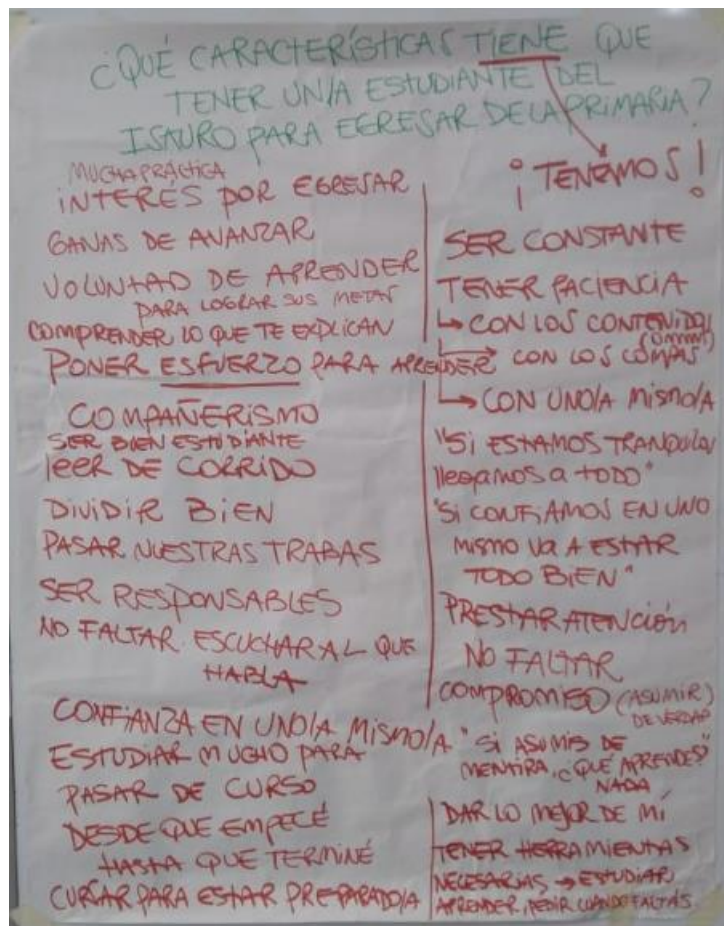 ¿QUÉ CARACTERÍSTICAS TIENE QUE
TENER UN/A ESTUDIANTE DEL
ISAURO PARA EGRESAR DE LA PRIMARIA?
¡TENEMOS!
MUCHA PRÁCTICA
INTERÉS POR EGRESAR
GANAS DE AVANZAR
VOLUNTAD DE APRENDER
PARA LOGRAR SUS METAS
COMPRENDER LO QUE TE EXPLICAN
PONER ESFUERZO PARA APRENDER
COMPAÑERISMO
SER BUEN ESTUDIANTE
leer DE CORRIDO
DIVIDIR BIEN
PASAR NUESTRAS TRABAS
SER RESPONSABLES
NO FALTAR. ESCUCHAR AL QUE
HABLA
CONFIANZA EN UNO/A MISMO/A
ESTUDIAR MUCHO PARA
PASAR DE CURSO
DESDE QUE EMPECÉ
HASTA QUE TERMINÉ
CURSAR PARA ESTAR PREPARADO/A
SER CONSTANTE
TENER PACIENCIA
↳ CON LOS CONTENIDOS
→ CON LOS COMPAS
↳ CON UNO/A MISMO/A
"SI ESTAMOS TRANQUILOS
llegamos a TODO"
"SI CONFIAMOS EN UNO
MISMO VA A ESTAR
TODO BIEN"
PRESTAR ATENCIÓN
NO FALTAR
COMPROMISO (ASUMIR)
DE VERDAD
"SI ASUMIS DE
MENTIRA, ¿QUÉ APRENDES?"
NADA
DAR LO MEJOR DE MÍ
TENER HERRAMIENTAS
NECESARIAS → ESTUDIAR
APRENDER, PEDIR CUANDO FALTÁS